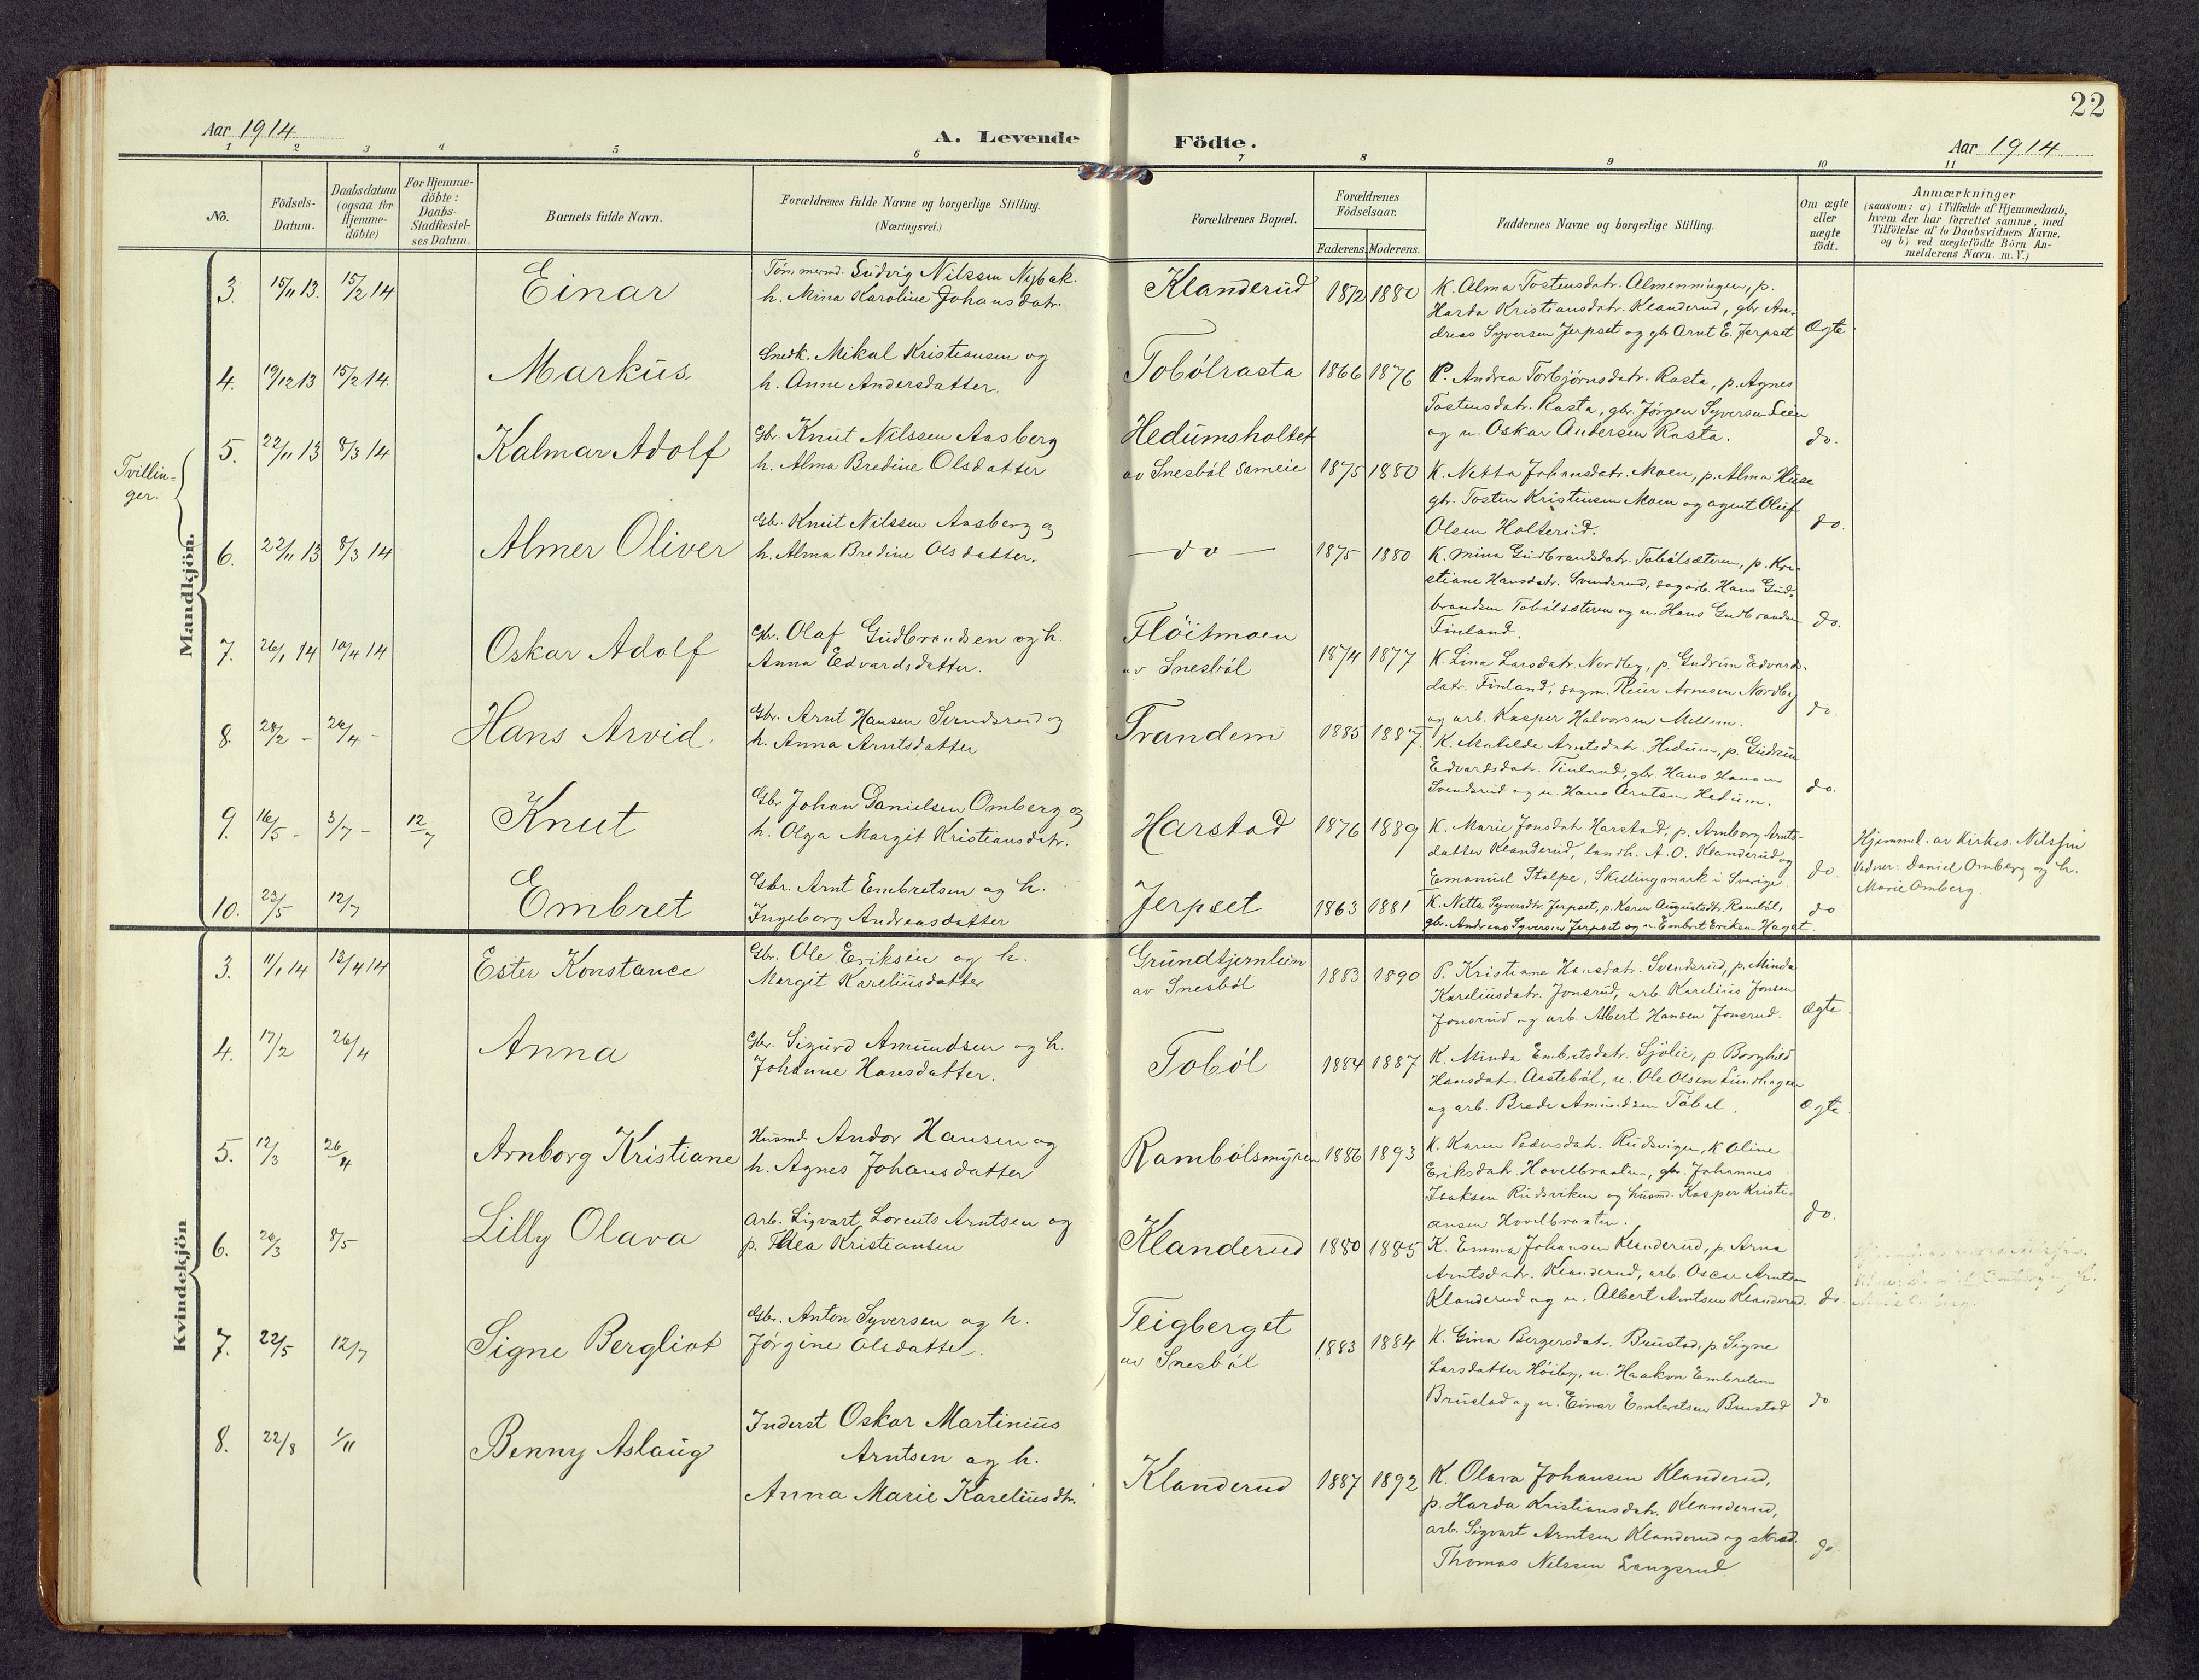 22
Aar 1914
A. Levende
Födte.
Aar 1914
1 2 3 4 5 6 7 8 9 10 11
No.
Födsels-
Datum.
Daabsdatum
(ogsaa for
Hjemme-
döbte)
For Hjemme-
döbte:
Daabs-
Stadfæstel-
ses Datum.
Barnets fulde Navn.
Forældrenes fulde Navne og borgerlige Stilling.
(Næringsvei.)
Forældrenes Bopæl.
Forældrenes
Födselsaar.
Faderens. Moderens.
Faddernes Navne og borgerlige Stilling.
Om ægte
eller
uægte
födt.
Anmærkninger
(saasom: a) i Tilfælde af Hjemmedaab,
hvem der har forrettet samme, med
Tilföielse af to Daabsvidners Navne.
og b) ved uægtefödte Börn An-
melderens Navn m. V.)
Mandkjön.
Tvillin-
ger.
3. 15/11 13. 15/2 14 Einar
Tömmermd. Ludvig Nilssen Nybak
h. Mina Karoline Johansdatr.
Klanderud 1872 1880
K. Alma Tostensdatr. Almenningen, p.
Harda Kristiansdatr. Klanderud, gbr. An-
dreas Syversen Jerpset og gbr Arnt E. Jerpset
Ægte
4. 19/12 13 15/2 14. Markus
Snedk. Mikal Kristiansen og
h. Anne Andersdatter.
Tobölrasta 1866 1876
P. Andrea Torbjörnsdatr. Rasta, p. Agnes
Tostensdatr. Rasta, gbr. Jörgen Syversen Lien
og u. Oskar Andersen Rasta.
do.
5. 22/11 13 8/3 14 Kalmar Adolf
Gbr. Knut Nilssen Aasberg
h. Alma Bredine Olsdatter
Hedumsholtet
av Snesböl Sameie 1875 1880
K. Netta Johansdatr. Moen, p. Alma Huse
gbr. Tosten Kristiansen Moen og agent Oluf
Olsen Holterud.
do.
6. 22/11 13 8/3 14 Almer Oliver
Gbr. Knut Nilssen Aasberg og
h. Alma Bredine Olsdatter.
— do — 1875 1880
K. Mina Gudbrandsdatr. Tobölsæteren, p. Kri-
stiane Hansdatr. Svendsrud, sagarb. Hans Gud-
brandsen Tobölsæteren og u. Hans Gudbrandsen
Finland.
do.
7. 26/1 14 10/4 14 Oskar Adolf
Gbr. Olaf Gudbrandsen og h.
Anna Edvardsdatter.
Flöitmoen
av Snesböl 1874 1877
K. Lina Larsdatr. Nordby, p. Gudrun Edvards-
datr. Finland, sagm. Peder Arnesen Nordby
og arb. Kasper Halvorsen Mellem.
do.
8. 28/2 – 26/4 – Hans Arvid.
Gbr. Arnt Hansen Svendsrud og
h. Anna Arntsdatter
Trandem 1885 1887
K. Matilde Arntsdatr. Hedum, p. Gudrun
Edvardsdatr. Finland, gbr. Hans Hansen
Svendsrud og u. Hans Arntsen Hedum.
do.
9. 16/5 – 3/7 – 12/7 Knut
Gbr. Johan Danielsen Omberg og
h. Olga Margit Kristiansdatr.
Harstad 1876 1889
K. Marie Jonsdatr Harstad, p. Arnborg Arnts-
datter Klanderud, landh. A. O. Klanderud og
Emanuel Stolpe, Skillingmark i Sverige
do.
Hjemmed. av Kirkes. Nilssen
Vidner: Daniel Omberg og h.
Marie Omberg.
10. 23/5 12/7 Embret
Gbr. Arnt Embretsen og h.
Ingeborg Andreasdatter
Jerpset 1863 1881
K. Netta Syversdtr. Jerpset, p. Karen Augustsdtr. Ramböl,
gbr. Andreas Syversen Jerpset og u. Embret Eriksen Haget.
do
Kvindekjön
3. 11/1 14 13/4 14 Ester Konstance
Gbr. Ole Eriksen og h.
Margit Kareliusdatter
Grundtjernlien
av Snesböl 1883 1890
P. Kristiane Hansdatr. Svendsrud, p. Minda
Kareliusdatr. Jonsrud, arb. Karelius Jonsen
Jonsrud og arb. Albert Hansen Jonsrud.
Ægte.
4. 17/2 26/4 Anna
Gbr. Sigurd Amundsen og h.
Johanne Hansdatter.
Toböl 1884 1887
K. Minda Embretsdatr. Sjölie, p. Borghild
Hansdatr. Aasteböl, u. Ole Olsen Lundhagen
og arb. Brede Amundsen Töbøl.
Ægte.
5. 12/3 26/4 Arnborg Kristiane
Husmd. Andor Hansen og
h. Agnes Johansdatter
Rambölsmyren 1886 1893
K. Karen Pedersdatr. Rudsvigen, K. Oline
Eriksdatr. Hovelbraaten, gbr. Johannes
Isaksen Rudsviken og husmd. Kasper Kristi-
ansen Hovelbraaten.
do.
6. 26/3 8/5 Lilly Olava
Arb. Sigvart Lorents Arntsen og
p. Thea Kristiansen
Klanderud 1880 1885
K. Emma Johansen Klanderud, p. Arna
Arntsdatr. Klanderud, arb. Oscar Arntsen
Klanderud og u. Albert Arntsen Klanderud.
do.
7. 22/5 12/7 Signe Bergliot
Gbr. Anton Syversen og h.
Jörgine Olsdatter.
Teigberget
av Snesböl 1883 1884
K. Gina Bergersdatr. Brustad, p. Signe
Larsdatter Höiby, u. Haakon Embretsen
Brustad og u. Einar Embretsen Brustad
do
8. 22/8 1/11 Benny Aslaug
Inderst Oskar Martinius
Arntsen og h.
Anna Marie Kareliusdtr.
Klanderud 1887 1892
K. Olava Johansen Klanderud,
p. Harda Kristiansdatr. Klanderud,
arb. Sigvart Arntsen Klanderud og skræd.
Thomas Nilssen Langsrud.
do.